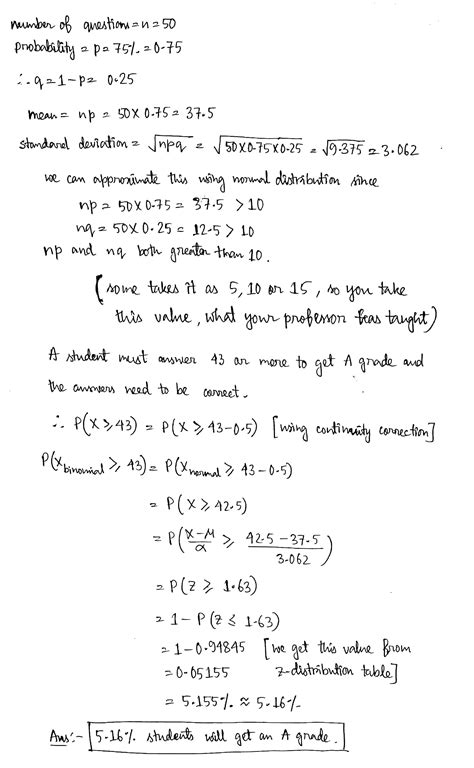 number of questions = n = 50
probability = p = 75% = 0.75
∴ q = 1-p = 0.25
mean = np = 50 × 0.75 = 37.5
standard deviation = √npq = √50×0.75×0.25 = √9.375 = 3.062
we can approximate this using normal distribution since
np = 50 × 0.75 = 37.5 > 10
nq = 50 × 0.25 = 12.5 > 10
np and nq both greater than 10.
(some takes it as 5, 10 or 15, so you take
this value, what your professor has taught)
A student must answer 43 or more to get A grade and
the answers need to be correct.
∴ P(X ≥ 43) = P(X ≥ 43-0.5) [using continuity correction]
P(X binomial ≥ 43) = P(X normal ≥ 43-0.5)
= P(X ≥ 42.5)
= P(X-μ/α ≥ 42.5-37.5/3.062)
= P(Z ≥ 1.63)
= 1 - P(Z ≤ 1.63)
= 1-0.94845 [we get this value from
= 0.05155 z-distribution table]
= 5.155% ≈ 5.16%
Ans:- 5.16% students will get an A grade.